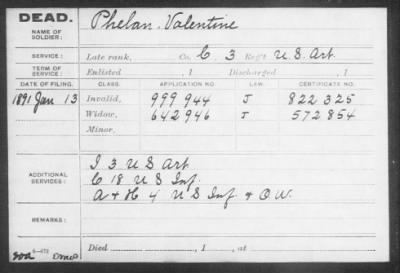 DEAD.
NAME OF SOLDIER: Phelan, Valentine
SERVICE: Late rank, Co. C 3 Reg't U.S. Art.
TERM OF SERVICE: Enlisted , 1 Discharged , 1
DATE OF FILING. CLASS. APPLICATION NO. LAW. CERTIFICATE NO.
1891 Jan 13 Invalid, 999 944 J 822 325
Widow, 642946 J 572854
Minor,
I 3 U S Art
ADDITIONAL SERVICES: C 18 U S Inf.
A & H 4 U S Inf. & O.W.
REMARKS:
Died , 1 , at